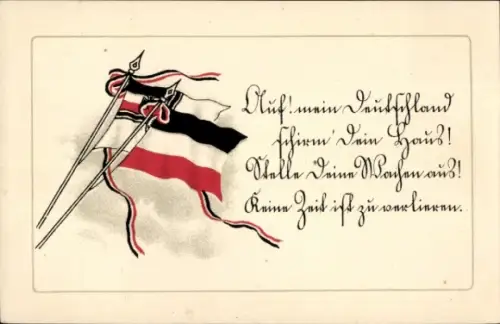 Auf! mein Deutschland
schirm' Dein Haus!
Stelle Deine Wachen aus!
Keine Zeit ist zu verlieren.